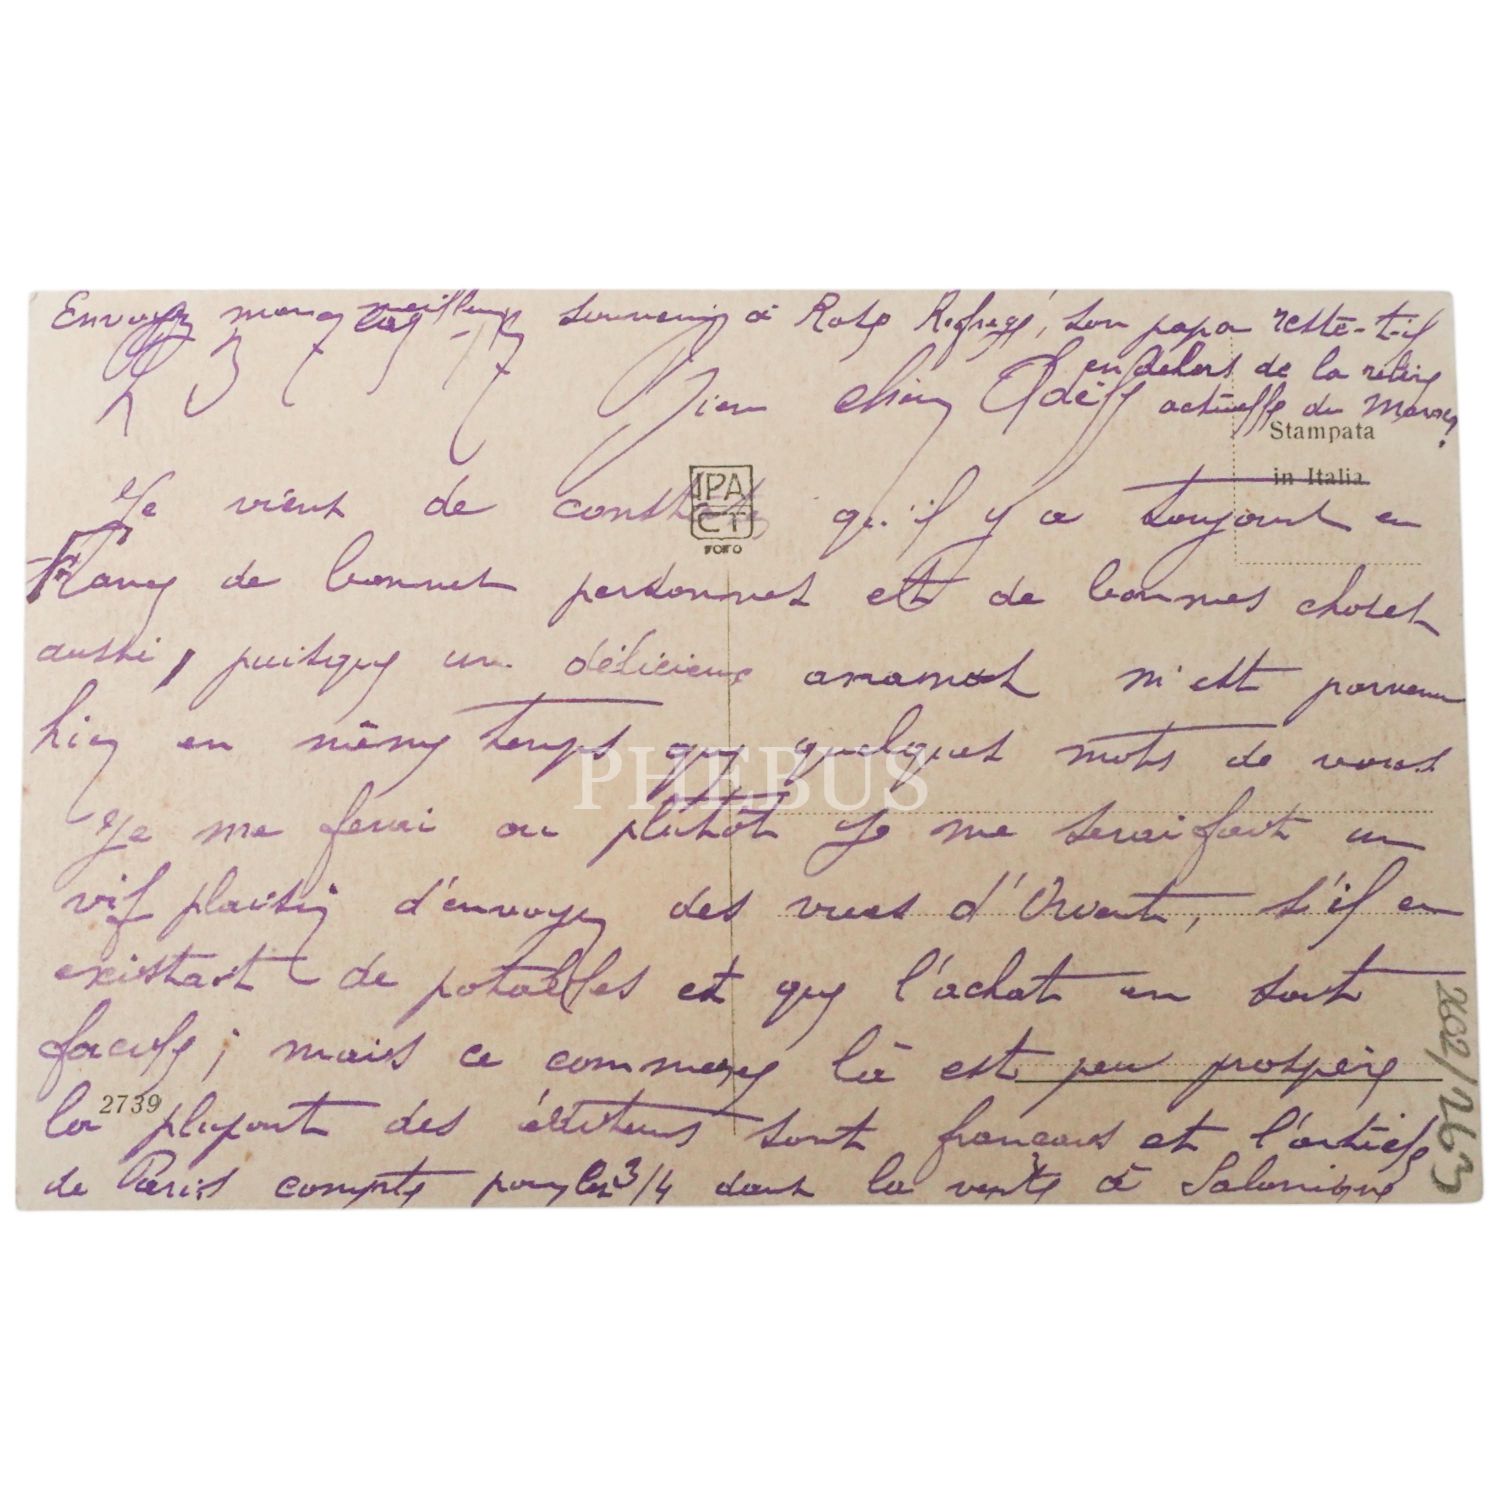 Envoyez mon meilleur souvenir à Rose Refregé, son papa reste-t-il
en dehors de la relève
actuelle du Maroc?
Bien chère Odèll
Stampata
in Italia
IPA
CT
FOTO
Je viens de constater qu'il y a toujours en
France de bonnes personnes et de bonnes choses
aussi, puisque un délicieux ananas m'est parvenu
hier en même temps que quelques mots de vous
PHEBUS
Je me ferai ou plutôt je me serai fait un
vif plaisir d'envoyer des vues d'Orient, s'il en
existait de potables et que l'achat en soit
facile; mais ce commerce là est peu prospère
2739
la plupart des éditeurs sont français et l'article
de Paris compte pour les 3/4 dans la vente à Salonique
2662/263